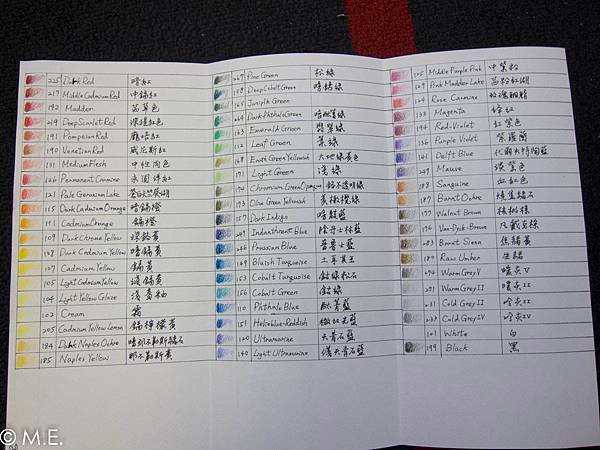 225 Dark Red 暗紅
217 Middle Cadmium Red 中鎘紅
192 Madder 茜草色
219 Deep Scarlet Red 深猩紅色
191 Pompeian Red 龐培紅
190 Venetian Red 威尼斯紅
131 Medium Flesh 中性肉色
126 Permanent Carmine 永固洋紅
121 Pale Geranium Lake
115 Dark Cadmium Orange 暗鎘橙
111 Cadmium Orange 鎘橙
109 Dark Chrome Yellow 深鉻黃
108 Dark Cadmium Yellow 暗鎘黃
107 Cadmium Yellow 鎘黃
105 Light Cadmium Yellow 淺鎘黃
104 Light Yellow Glaze 淺黃釉
102 Cream 霜
205 Cadmium Yellow Lemon 鎘檸檬黃
184 Dark Naples Ochre 暗那不勒斯赭石
185 Naples Yellow 那不勒斯黃
267 Pine Green 松綠
158 Deep Cobalt Green 暗鈷綠
165 Juniper Green
264 Dark Phthalo Green 暗酞菁綠
163 Emerald Green 翡翠綠
112 Leaf Green 葉綠
168 Earth Green Yellowish 大地綠黃色
171 Light Green 淺綠
174 Chromium Green Opaque 鉻不透明綠
173 Olive Green Yellowish 黃橄欖綠
157 Dark Indigo 暗靛藍
247 Indanthrene Blue 陰丹士林藍
246 Prussian Blue 普魯士藍
149 Bluish Turquoise 土耳其玉
153 Cobalt Turquoise 鈷綠松石
156 Cobalt Green 鈷綠
110 Phthalo Blue 酞菁藍
151 Helioblue-Reddish 微紅光藍
120 Ultramarine 天青石藍
140 Light Ultramarine 淺天青石藍
125 Middle Purple Pink 中紫粉
129 Pink Madder Lake
124 Rose Carmine 玫瑰胭脂
133 Magenta 綘紅
194 Red-Violet 紅紫色
136 Purple Violet 紫羅蘭
141 Delft Blue 代爾夫特陶藍
249 Mauve 淡紫色
188 Sanguine 血紅色
187 Burnt Ochre 燒焦赭石
177 Walnut Brown 核桃棕
176 Van-Dyck-Brown 凡戴克棕
283 Burnt Siena 焦赭黃
180 Raw Umber 生赭
274 Warm Grey V 暖灰V
271 Warm Grey II 暖灰II
231 Cold Grey II 冷灰II
233 Cold Grey IV 冷灰IV
101 White 白
199 Black 黑
© M.E.